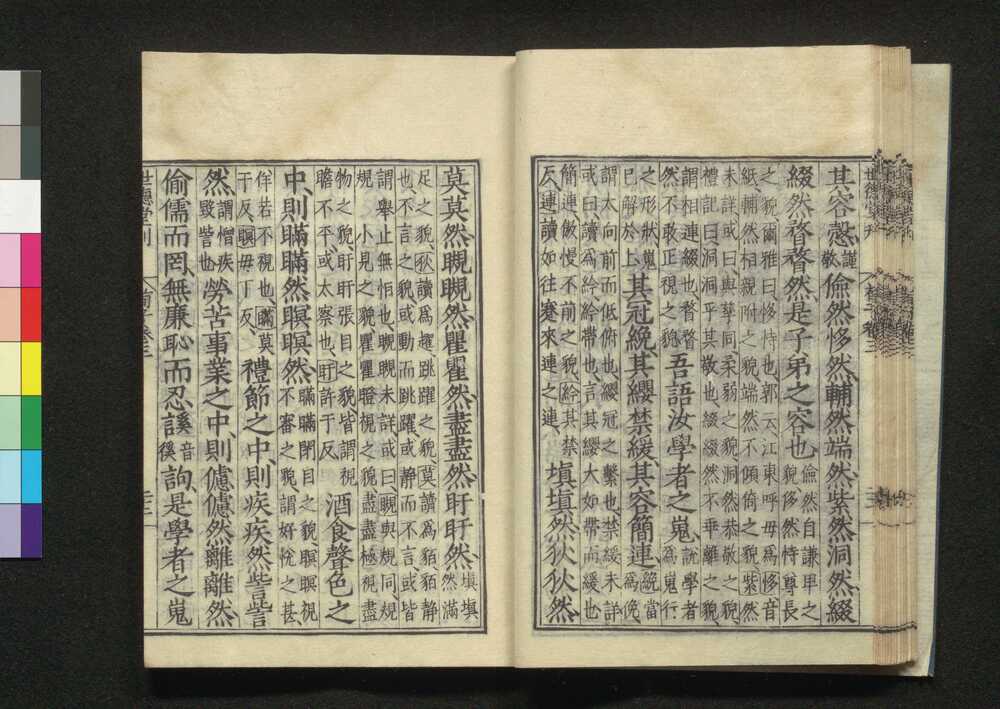 其容愨謹敬儉然恀然輔然端然訾然洞然綴
綴然瞀瞀然是子弟之容也儉然自謙卑之貌恀然恃尊長
之貌爾雅曰恀恃也郭云江東呼母為恀音
紙輔然相親附之貌端然不傾倚之貌訾然
未詳或曰與孳同柔弱之貌洞然恭敬之貌
禮記曰洞洞乎其敬也綴綴然不乖離之貌
謂相連綴也瞀瞀
然不敢正視之貌吾語汝學者之嵬說學者為嵬行
之形狀嵬
已解於上其冠絻其纓禁緩其容簡連絻當為俛
謂太向前而低俯也纓冠之繫也禁緩未詳
或曰讀為紟紟帶也言其纓大如帶而緩也
簡連傲慢不前之貌紟其禁
反連讀如往蹇來連之連填填然狄狄然
莫莫然瞡瞡然瞿瞿然盡盡然盱盱然填填然滿
足之貌狄讀為趯跳躍之貌莫讀為貊貊靜
也不言之貌或動而跳躍或靜而不言或皆
謂舉止無恒也瞡瞡未詳或曰瞡與規同規
規小見之貌瞿瞿瞪視之貌盡盡極視盡
物之貌盱盱張目之貌皆謂視
瞻不平或太察也盱許于反酒食聲色之
中則瞞瞞然瞑瞑然瞞瞞閉目之貌瞑瞑視不審之貌謂好悅之甚
佯若不視也瞞莫
干反瞑母丁反禮節之中則疾疾然訾訾
然謂憎疾毀訾也勞苦事業之中則儢儢然離離然
偷儒而罔無廉恥而忍謑音徯詢是學者之嵬
世德堂刊
荀子卷三